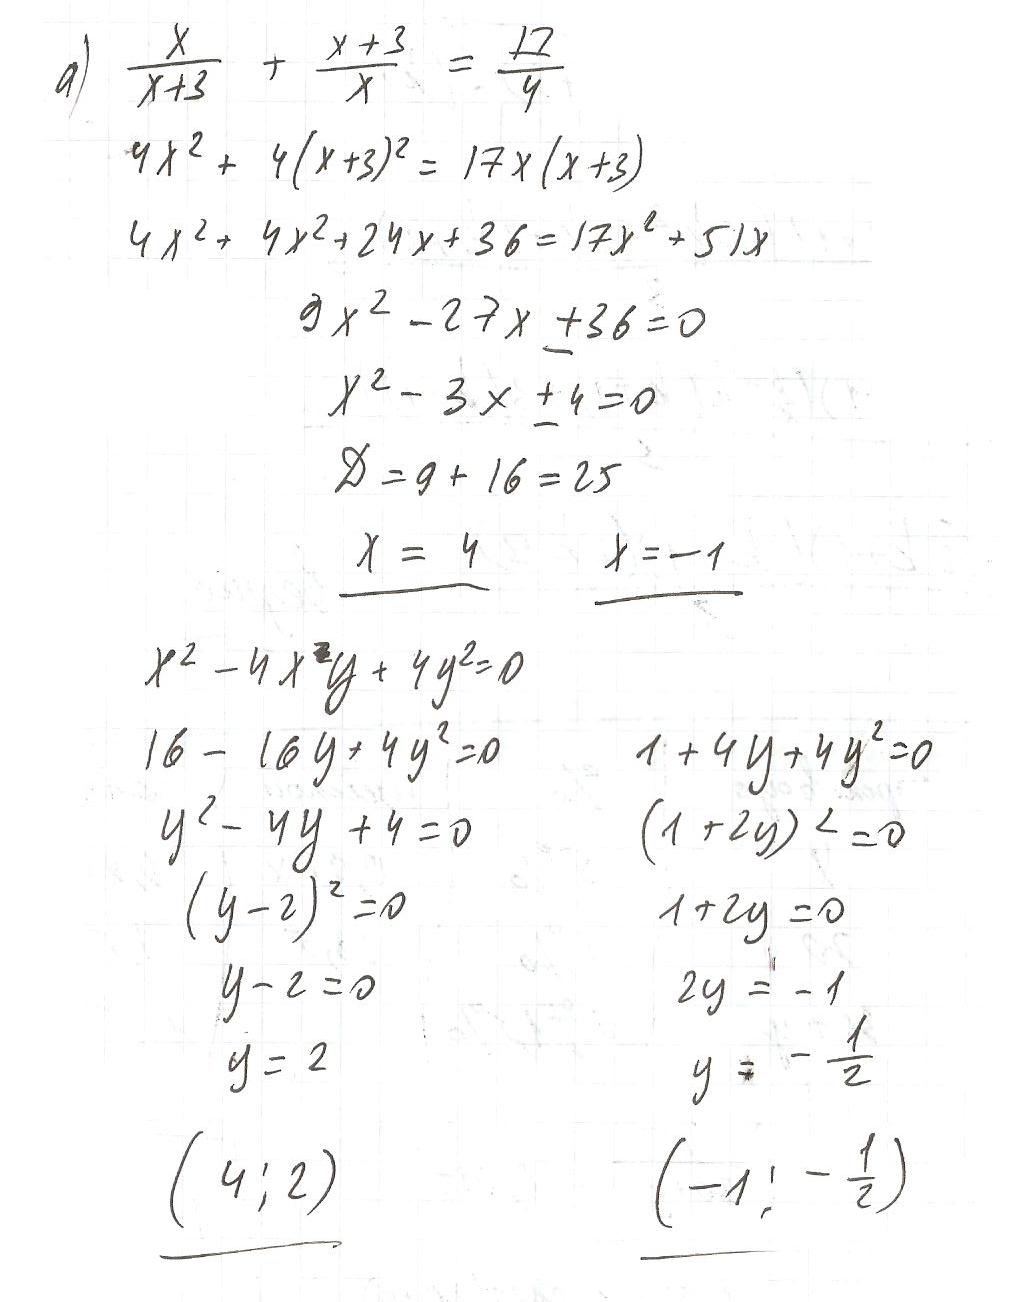 а) x/(x+3) + (x+3)/x = 17/4
4x² + 4(x+3)² = 17x(x+3)
4x² + 4x² + 24x + 36 = 17x² + 51x
9x² - 27x ± 36 = 0
x² - 3x ± 4 = 0
D = 9 + 16 = 25
x = 4 x = -1
x² - 4xy + 4y² = 0
16 - 16y + 4y² = 0 1 + 4y + 4y² = 0
y² - 4y + 4 = 0 (1 + 2y)² = 0
(y - 2)² = 0 1 + 2y = 0
y - 2 = 0 2y = -1
y = 2 y = -1/2
(4; 2) (-1; -1/2)